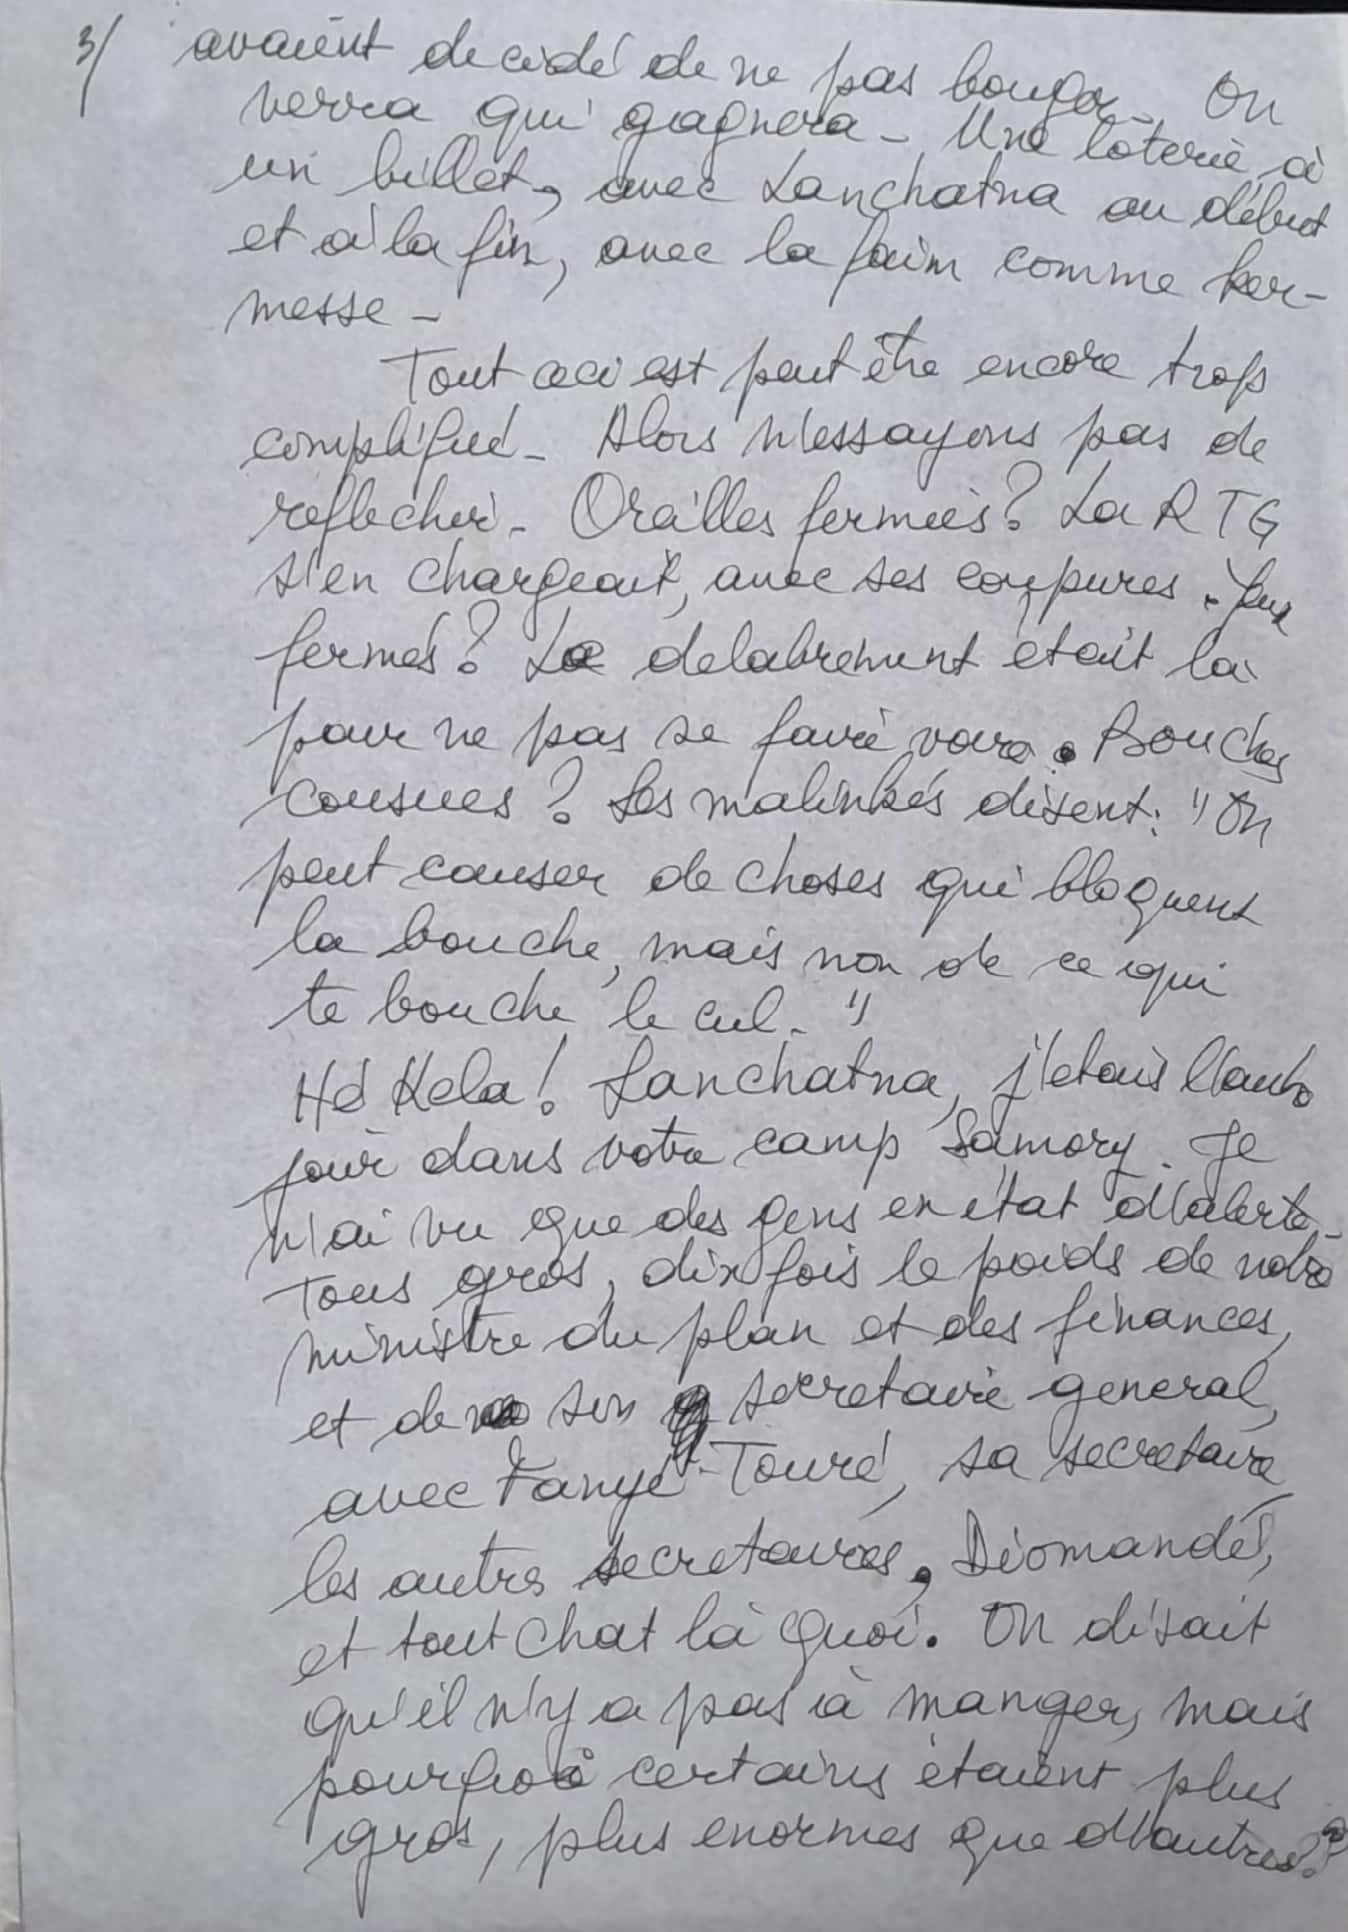 3/ avaient decidé de ne pas bouger - On
verra qui gagnera - Une loterie à
un billet, avec Lanchatna au début
et à la fin, avec la faim comme ker-
messe -
Tout ceci est peut être encore trop
compliqué - Alors n'essayons pas de
reflechir - Oreilles fermées? La RTG
s'en chargeait, avec ses coupures. Yeux
fermés? Le delabrement était là
pour ne pas se faire voir. Bouches
cousues? Les malinkés disent: "On
peut causer de choses qui bloquent
la bouche, mais non de ce qui
te bouche le cul. "
Hé Kela! Lanchatna, j'etais l'autre
jour dans votre camp Samory. Je
n'ai vu que des gens en état d'alerte -
Tous gros, dix fois le poids de notre
ministre du plan et des finances,
et de son secretaire general,
avec Fanyé-Touré, sa secretaire
les autres secretaires, Diomandé,
et tout chat là quoi. On disait
qu'il n'y a pas à manger, mais
pourquoi certains étaient plus
gros, plus enormes que d'autres?